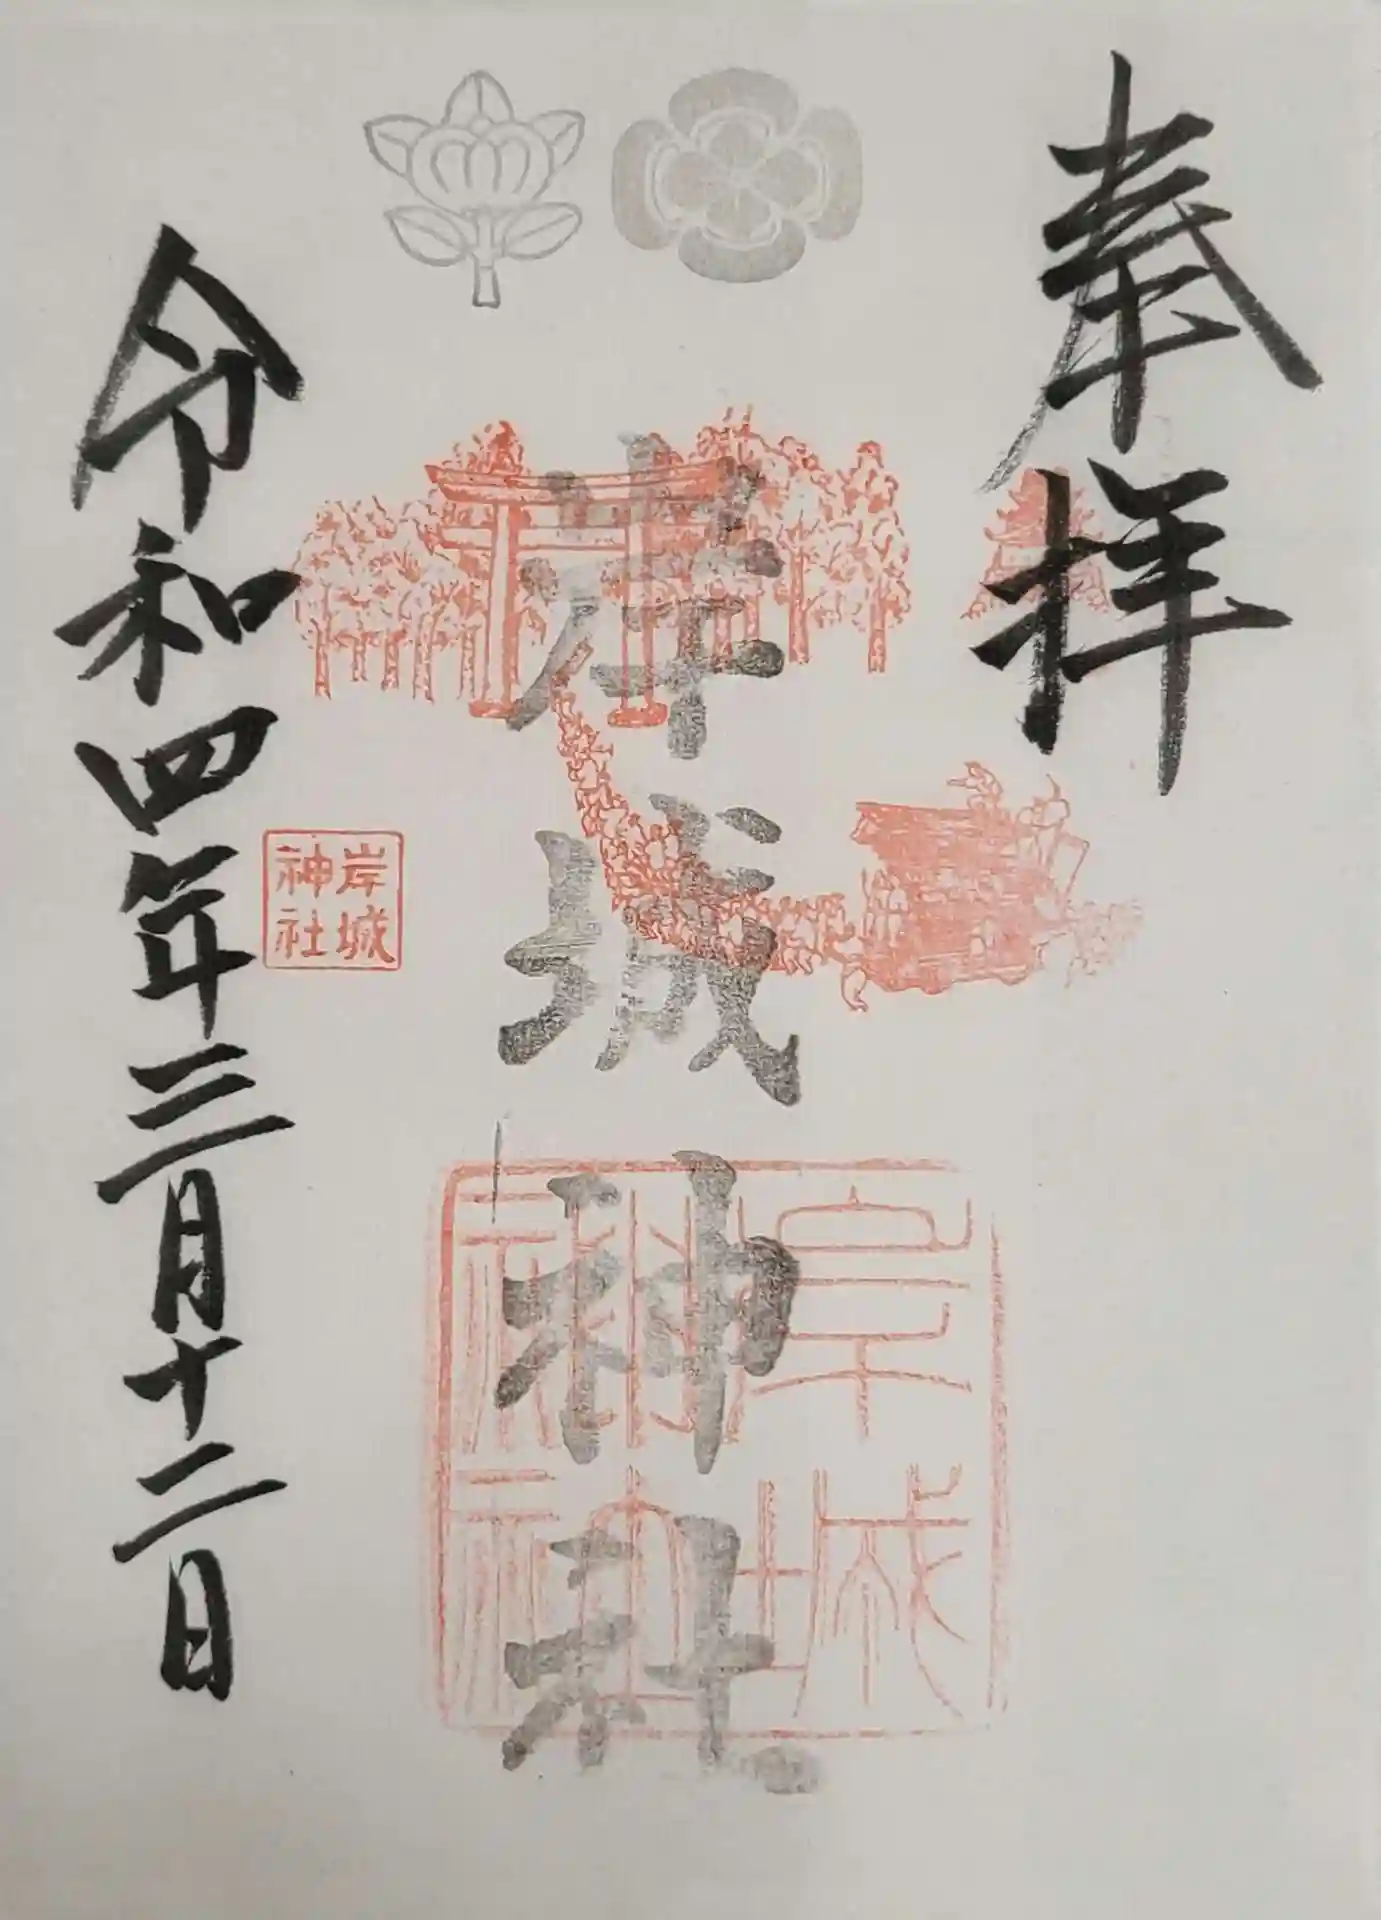 奉拝
岸城神社
岸城
神社
岸城
神社
令和四年三月十二日